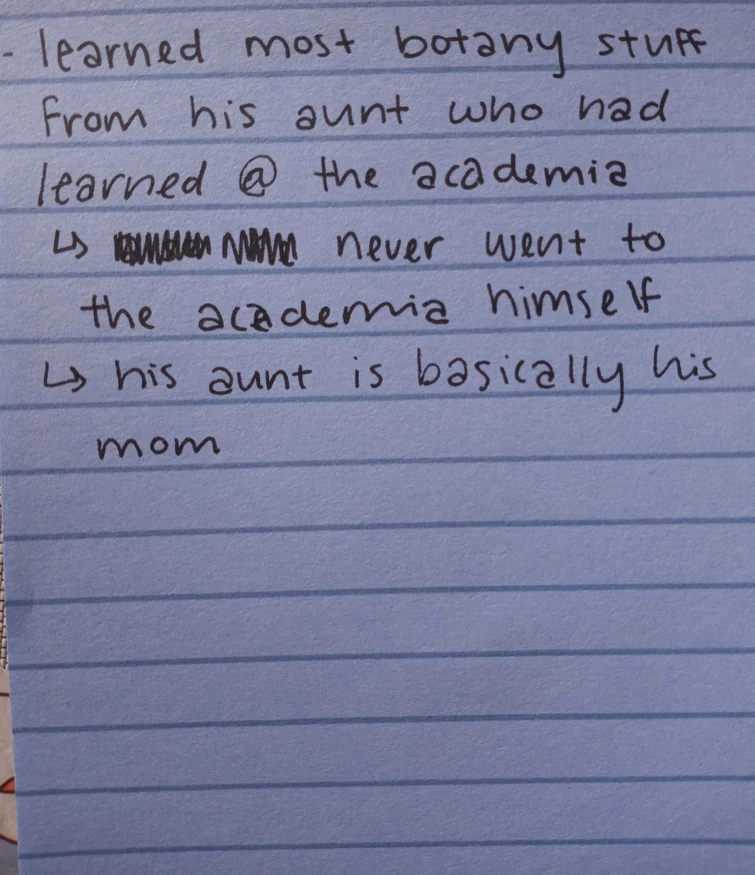 - learned most botany stuff
from his aunt who had
learned @ the academia
↳ never went to
the academia himself
↳ his aunt is basically his
mom